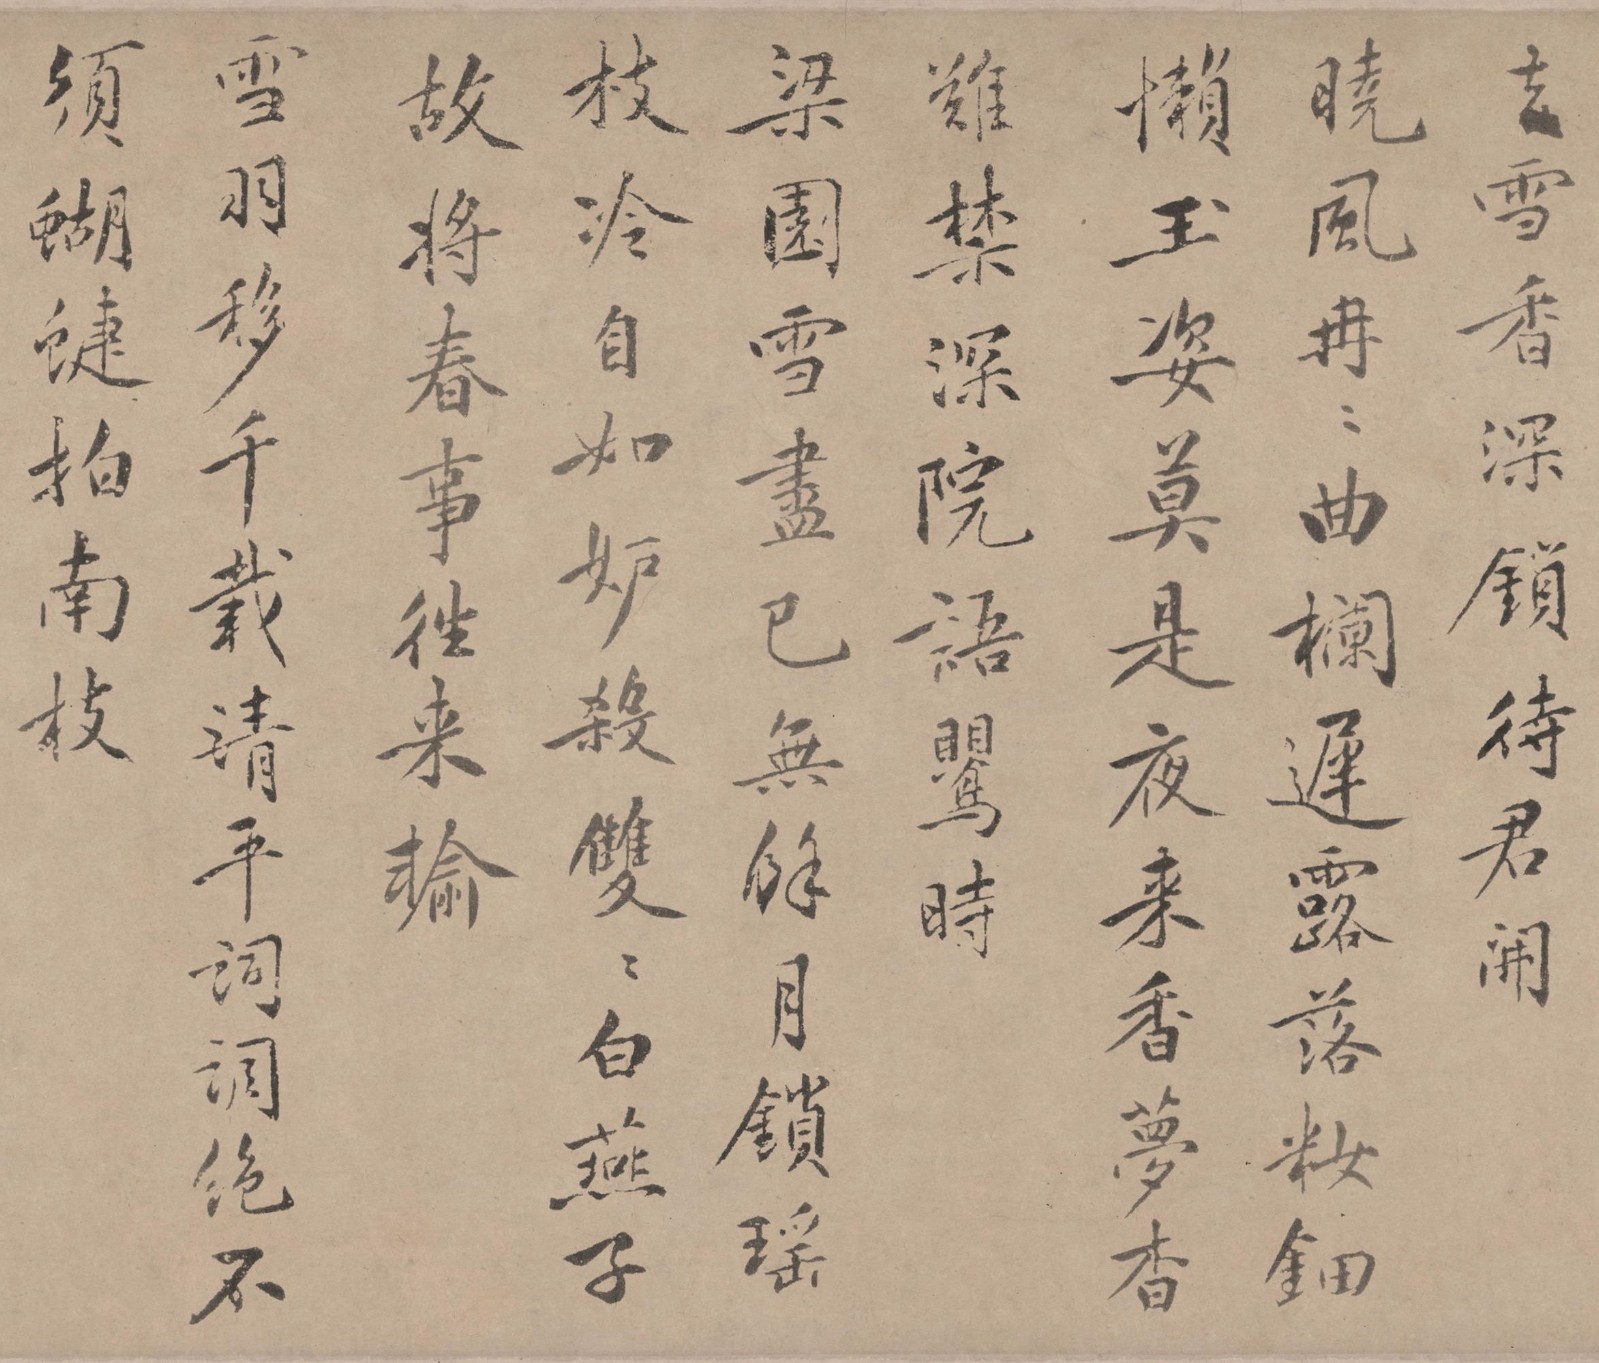 去雪香深鎖待君開
曉風冉〻曲欄遲露落粧鈿
懶玉姿莫是夜来香夢杳
難禁深院語鸎時
梁園雪盡已無餘月鎖瑶
枝冷自如妒殺雙〻白燕子
故將春事往来輸
雪羽移千載清平詞調絶不
須蝴蜨拍南枝